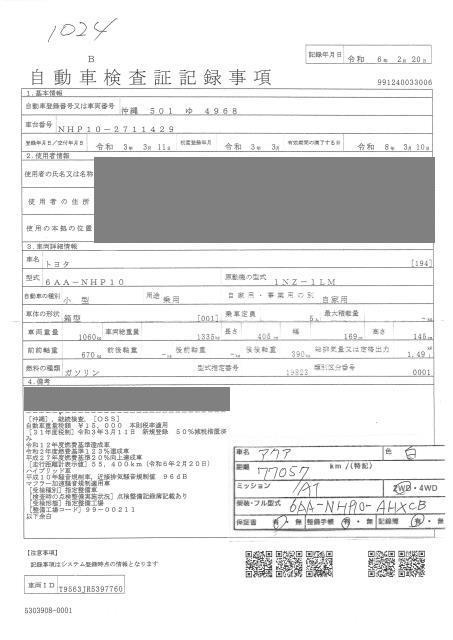 1024
B
記録年月日 令和 6年 2月20日
自動車検査証記録事項
991240033006
1.基本情報
自動車登録番号又は車両番号 沖縄 501 ゆ 4968
車台番号 NHP10-2711429
登録年月日/交付年月日 令和 3年 3月11日 初度登録年月 令和 3年 3月 有効期間の満了する日 令和 8年 3月10日
2.使用者情報
使用者の氏名又は名称
使用者の住所
使用の本拠の位置
3.車両詳細情報
車名 トヨタ [194]
型式 6AA-NHP10 原動機の型式 1NZ-1LM
自動車の種別 小型 用途 乗用 自家用・事業用の別 自家用
車体の形状 箱型 [001] 乗車定員 5人 最大積載量 -kg
車両重量 1060kg 車両総重量 1335kg 長さ 405cm 幅 169cm 高さ 145cm
前前軸重 670kg 前後軸重 -kg 後前軸重 -kg 後後軸重 390kg 総排気量又は定格出力 1.49L
燃料の種類 ガソリン 型式指定番号 19823 類別区分番号 0001
4.備考
[沖縄],継続検査,[OSS]
自動車重量税額 ¥15,000 本則税率適用
[31年度税制]令和3年3月11日 新規登録 50%減税措置済
み
令和12年度燃費基準達成車
令和2年度燃費基準123%達成車
平成27年度燃費基準20%向上達成車
[走行距離計表示値]55,400km(令和6年2月20日)
ハイブリッド車
平成10年騒音規制車,近接排気騒音規制値 96dB
マフラー加速騒音規制適用車
[受検種別]指定整備車
[検査時の点検整備実施状況]点検整備記録簿記載あり
[受検形態]指定整備工場
[整備工場コード]99-00211
以下余白
車名 アクア 色 白
距離 77057 km/(特記)
ミッション /AT 2WD・4WD
型式・フル型式 6AA-NHP10-AHXCB
保証書 有・無 整備手帳 有・無 記録簿 有・無
[注意事項]
記載事項はシステム登録時点の情報となります
車両ID T9563JR5397760
5303908-0001